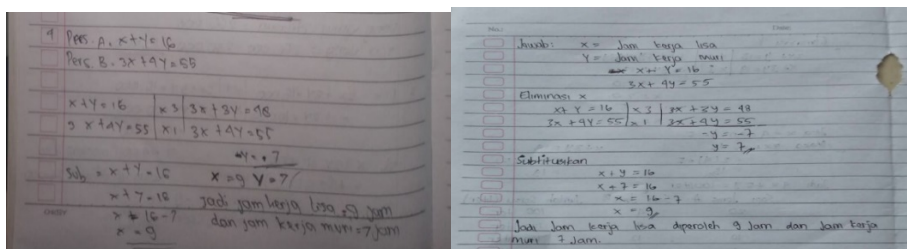 9 Pers. A. x+y=16
Pers. B. 3x+4y=55
x+y=16 | x3 | 3x+3y=48
3x+4y=55 | x1 | 3x+4y=55
-y=-7
x=9 y=7
Sub = x+y=16
x+7=16
x=16-7
x=9
Jadi jam kerja lisa = 9 jam
dan jam kerja muri = 7 jam
No.:
Date:
Jawab: x = Jam kerja lisa
y = Jam kerja muri
x+y=16
3x+4y=55
Eliminasi x
x+y=16 | x3 | 3x+3y=48
3x+4y=55 | x1 | 3x+4y=55
-y=-7
y=7
Subtitusikan
x+y=16
x+7=16
x=16-7
x=9
Jadi Jam kerja lisa diperoleh 9 Jam dan Jam kerja
muri 7 Jam.